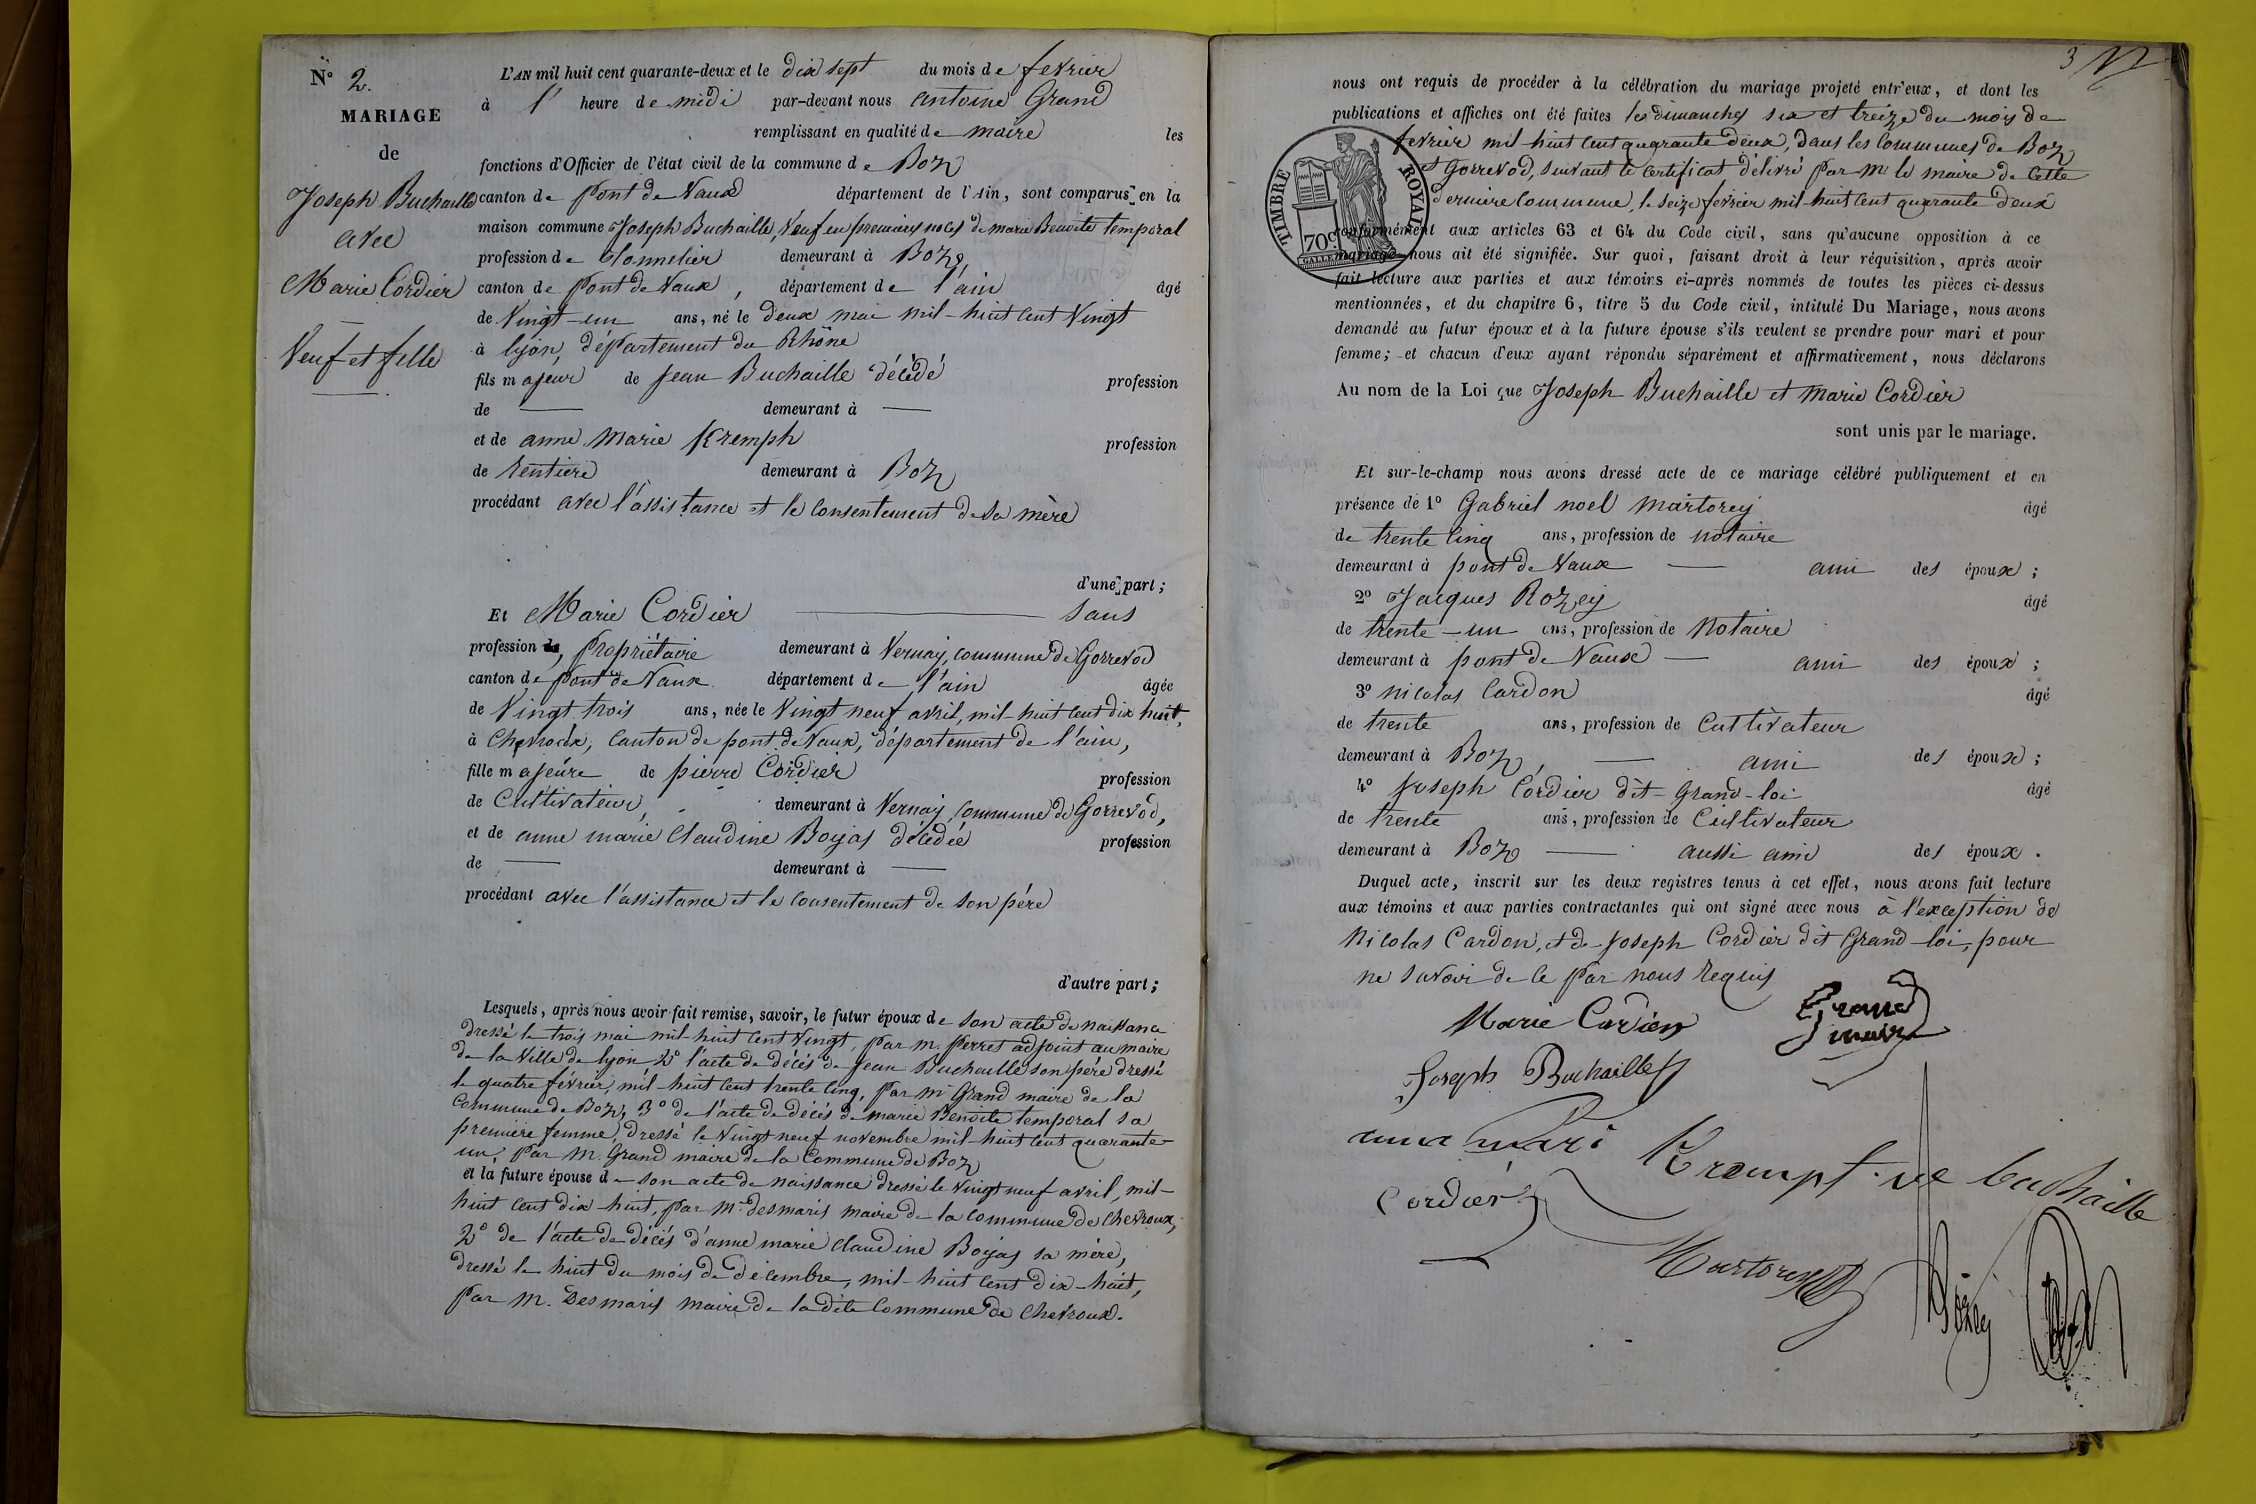 N° 2.
MARIAGE
de
Joseph Buchaille
avec
Marie Cordier
Veuf et fille
L'AN mil huit cent quarante-deux et le dix sept du mois de fevrier
à l' heure de midi par-devant nous antoine Grand
remplissant en qualité de maire les
fonctions d'Officier de l'état civil de la commune de Boz
canton de Pont de Vaux département de l'Ain, sont comparus en la
maison commune Joseph Buchaille, Veuf en premieres noces de marie Benoite temporal
profession de tonnelier demeurant à Boz,
canton de Pont de Vaux, département de l'ain âgé
de Vingt-un ans, né le deux mai mil-huit cent Vingt
à lyon, département du Rhône
fils majeur de Jean Buchaille décédé profession
de — demeurant à —
et de anne Marie Kremph profession
de rentiere demeurant à Boz
procédant avec l'assistance et le consentement de sa mère
d'une part ;
Et Marie Cordier — sans
profession, Propriétaire demeurant à Vernay, commune de Gorrevod
canton de Pont de Vaux département de l'ain âgée
de Vingt trois ans, née le Vingt neuf avril, mil-huit cent dix huit,
à Chevroux, Canton de pont de Vaux, département de l'ain,
fille majeure de pierre Cordier profession
de Cultivateur, demeurant à Vernay, commune de Gorrevod,
et de anne marie Claudine Boyas décédée profession
de — demeurant à —
procédant avec l'assistance et le consentement de son père
d'autre part ;
Lesquels, après nous avoir fait remise, savoir, le futur époux de son acte de naissance
dressé le trois mai mil huit cent Vingt, par m. Perret adjoint au maire
de la Ville de lyon 2° l'acte de décés de Jean Buchaille son père dressé
le quatre février, mil-huit cent trente cinq, par mr Grand maire de la
Commune de Boz, 3° de l'acte de décés de marie Benoite temporal sa
premiere femme, dressé le Vingt neuf novembre mil-huit cent quarante-
un, par M. Grand maire de la Commune de Boz
et la future épouse de son acte de naissance dressé le Vingt neuf avril, mil-
huit cent dix-huit, par Mr desmaris maire de la commune de Chevroux,
2° de l'acte de décés d'anne marie claudine Boyas sa mère,
dressé le huit du mois de décembre, mil-huit cent dix-huit,
par M. Desmaris maire de la dite Commune de Chevroux.
3
nous ont requis de procéder à la célébration du mariage projeté entr'eux, et dont les
publications et affiches ont été faites les dimanches six et treize du mois de
fevrier mil-huit cent quarante deux, dans les Communes de Boz
et Gorrevod, suivant le Certificat délivré par Mr le maire de Cette
derniere Commune, le seize fevrier mil-huit cent quarante deux
TIMBRE ROYAL
70c
conformément aux articles 63 et 64 du Code civil, sans qu'aucune opposition à ce
mariage nous ait été signifiée. Sur quoi, faisant droit à leur réquisition, après avoir
fait lecture aux parties et aux témoins ci-après nommés de toutes les pièces ci-dessus
mentionnées, et du chapitre 6, titre 5 du Code civil, intitulé Du Mariage, nous avons
demandé au futur époux et à la future épouse s'ils veulent se prendre pour mari et pour
femme; et chacun d'eux ayant répondu séparément et affirmativement, nous déclarons
Au nom de la Loi que Joseph Buchaille et Marie Cordier
sont unis par le mariage.
Et sur-le-champ nous avons dressé acte de ce mariage célébré publiquement et en
présence de 1° Gabriel noel Martorey âgé
de trente cinq ans, profession de notaire
demeurant à pont de Vaux — ami des époux ;
2° Jacques Rozey âgé
de trente-un ans, profession de Notaire
demeurant à pont de Vaux — ami des époux ;
3° Nicolas Cardon âgé
de trente ans, profession de Cultivateur
demeurant à Boz, — ami des époux ;
4° Joseph Cordier dit-Grand-loi âgé
de trente ans, profession de Cultivateur
demeurant à Boz — aussi ami des époux.
Duquel acte, inscrit sur les deux registres tenus à cet effet, nous avons fait lecture
aux témoins et aux parties contractantes qui ont signé avec nous à l'exception de
Nicolas Cardon, et de Joseph Cordier dit Grand-loi, pour
ne savoir de ce par nous requis
Marie Cordier
Grand
maire
Joseph Buchaille
anna mari Krempf ve buchaille
Cordier
Martorey
Rozey